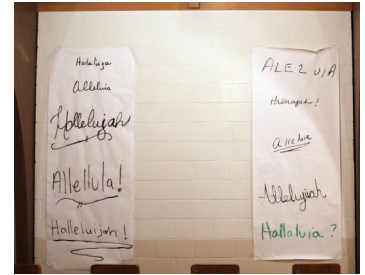 Halaluya
Alleluia
Hallelujah
Allellula!
Halleluijah!
ALEZUIA
Hallurujah!
Alleluia
Allelujiah
Hallaluia?